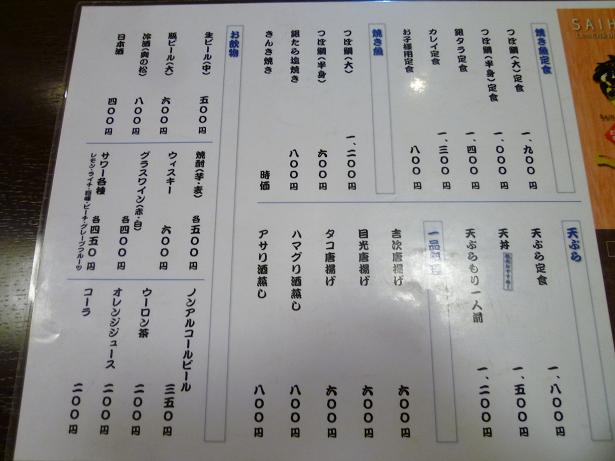 焼き魚定食
つぼ鯛(大)定食 一、九〇〇円
つぼ鯛(半身)定食 一、〇〇〇円
銀タラ定食 一、四〇〇円
カレイ定食 一、三〇〇円
お子様用定食 八〇〇円
焼き魚
つぼ鯛(大) 一、二〇〇円
つぼ鯛(半身) 六〇〇円
銀たら塩焼き 八〇〇円
きんき焼き 時価
お飲物
生ビール(中) 五〇〇円
瓶ビール(大) 六〇〇円
冷酒(奥の松) 八〇〇円
日本酒 四〇〇円
焼酎(芋・麦) 各五〇〇円
ウィスキー 六〇〇円
グラスワイン(赤・白) 各四〇〇円
サワー各種 各四五〇円
ノンアルコールビール 三五〇円
ウーロン茶 二〇〇円
オレンジジュース 二〇〇円
コーラ 二〇〇円
天ぷら
天ぷら定食 一、八〇〇円
天丼 一、五〇〇円
天ぷらもり一人前 一、二〇〇円
一品料理
吉次唐揚げ 六〇〇円
目光唐揚げ 六〇〇円
タコ唐揚げ 六〇〇円
ハマグリ酒蒸し 八〇〇円
アサリ酒蒸し 八〇〇円
SAIH